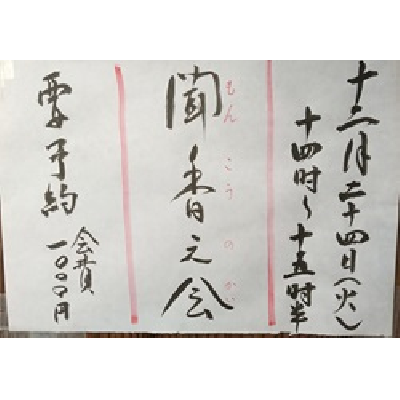 十二月二十四日(火)
十四時〜十五時半
もんこうのかい
聞香之会
要予約
会費一〇〇〇円